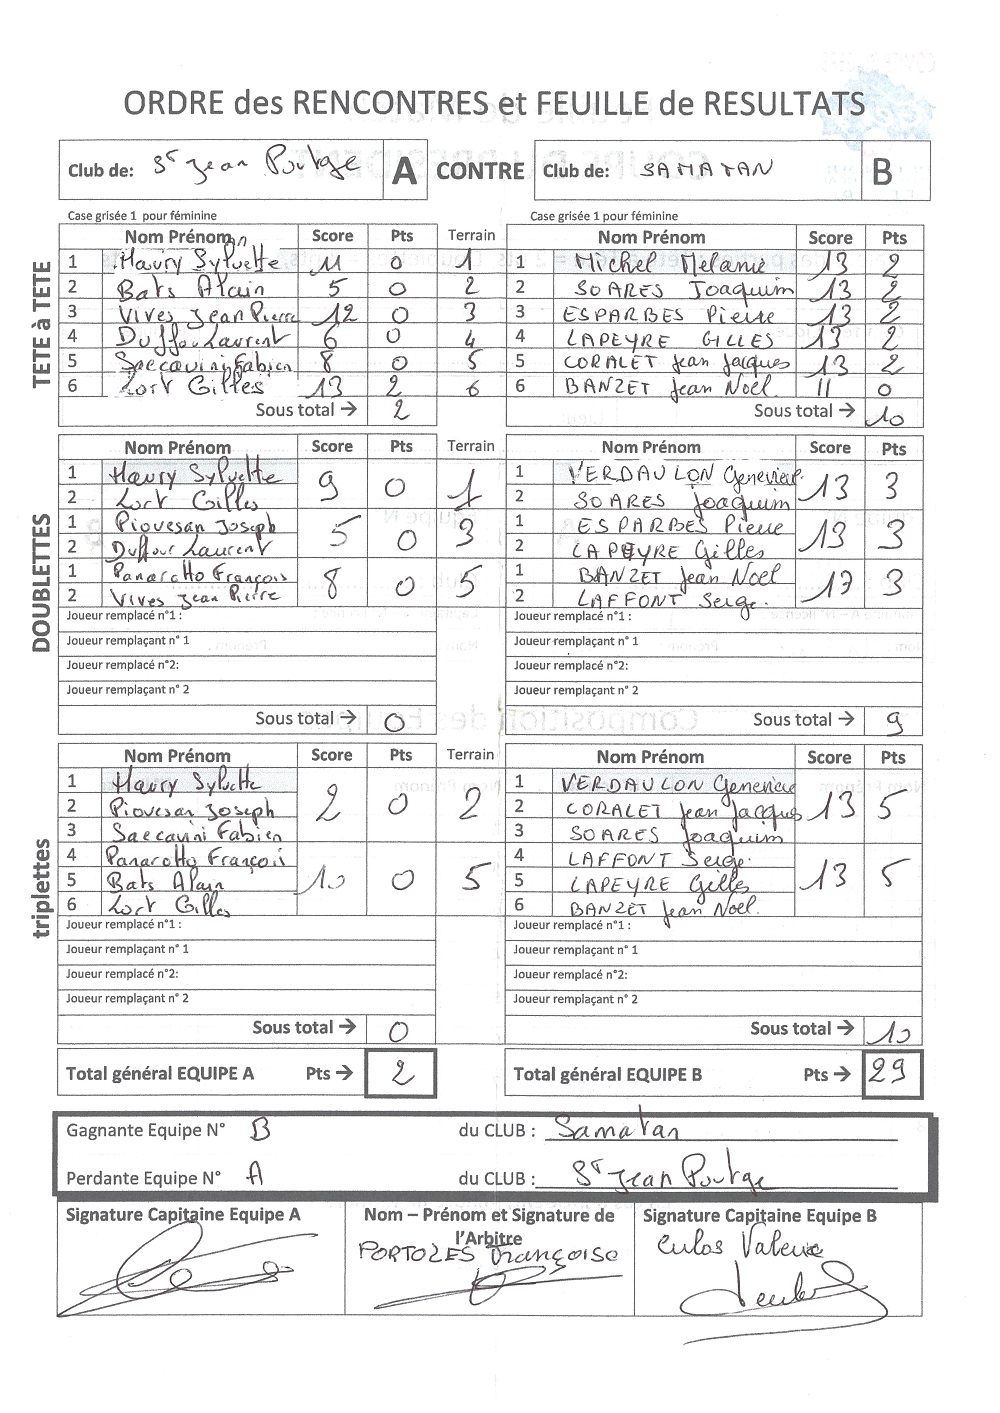 ORDRE des RENCONTRES et FEUILLE de RESULTATS
Club de: St Jean Poutge A CONTRE Club de: SAMATAN B
Case grisée 1 pour féminine Case grisée 1 pour féminine
Nom Prénom Score Pts Terrain Nom Prénom Score Pts
TETE à TETE
1 Haury Sylvette 11 0 1 1 Michel Mélanie 13 2
2 Bats Alain 5 0 2 2 SOARES Joaquim 13 2
3 Vives Jean Pierre 12 0 3 3 ESPARBES Pierre 13 2
4 Duffour Laurent 6 0 4 4 LAPEYRE GILLES 13 2
5 Saccavini Fabien 8 0 5 5 CORALET Jean Jacques 13 2
6 Lort Gilles 13 2 6 6 BANZET Jean Noël 11 0
Sous total → 2 Sous total → 10
Nom Prénom Score Pts Terrain Nom Prénom Score Pts
DOUBLETTES
1 Haury Sylvette 9 0 1 1 VERDAULON Geneviève 13 3
2 Lort Gilles 2 SOARES Joaquim
1 Piovesan Joseph 5 0 3 1 ESPARBES Pierre 13 3
2 Duffour Laurent 2 LAPEYRE Gilles
1 Panarotto François 8 0 5 1 BANZET Jean Noël 13 3
2 Vives Jean Pierre 2 LAFFONT Serge.
Joueur remplacé n°1 : Joueur remplacé n°1 :
Joueur remplaçant n° 1 Joueur remplaçant n° 1
Joueur remplacé n°2: Joueur remplacé n°2:
Joueur remplaçant n° 2 Joueur remplaçant n° 2
Sous total → 0 Sous total → 9
Nom Prénom Score Pts Terrain Nom Prénom Score Pts
triplettes
1 Haury Sylvette 2 0 2 1 VERDAULON Geneviève 13 5
2 Piovesan Joseph 2 CORALET Jean Jacques
3 Saccavini Fabien 3 SOARES Joaquim
4 Panarotto François 10 0 5 4 LAFFONT Serge. 13 5
5 Bats Alain 5 LAPEYRE Gilles
6 Lort Gilles 6 BANZET Jean Noël.
Joueur remplacé n°1 : Joueur remplacé n°1 :
Joueur remplaçant n° 1 Joueur remplaçant n° 1
Joueur remplacé n°2: Joueur remplacé n°2:
Joueur remplaçant n° 2 Joueur remplaçant n° 2
Sous total → 0 Sous total → 10
Total général EQUIPE A Pts → 2 Total général EQUIPE B Pts → 29
Gagnante Equipe N° B du CLUB : Samatan
Perdante Equipe N° A du CLUB : St Jean Poutge
Signature Capitaine Equipe A Nom – Prénom et Signature de l'Arbitre Signature Capitaine Equipe B
PORTOLES Françoise Valérie